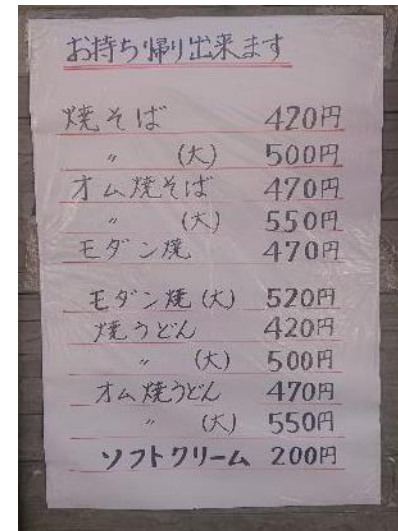 お持ち帰り出来ます
焼そば 420円
〃 (大) 500円
オム焼そば 470円
〃 (大) 550円
モダン焼 470円
モダン焼(大) 520円
焼うどん 420円
〃 (大) 500円
オム焼うどん 470円
〃 (大) 550円
ソフトクリーム 200円